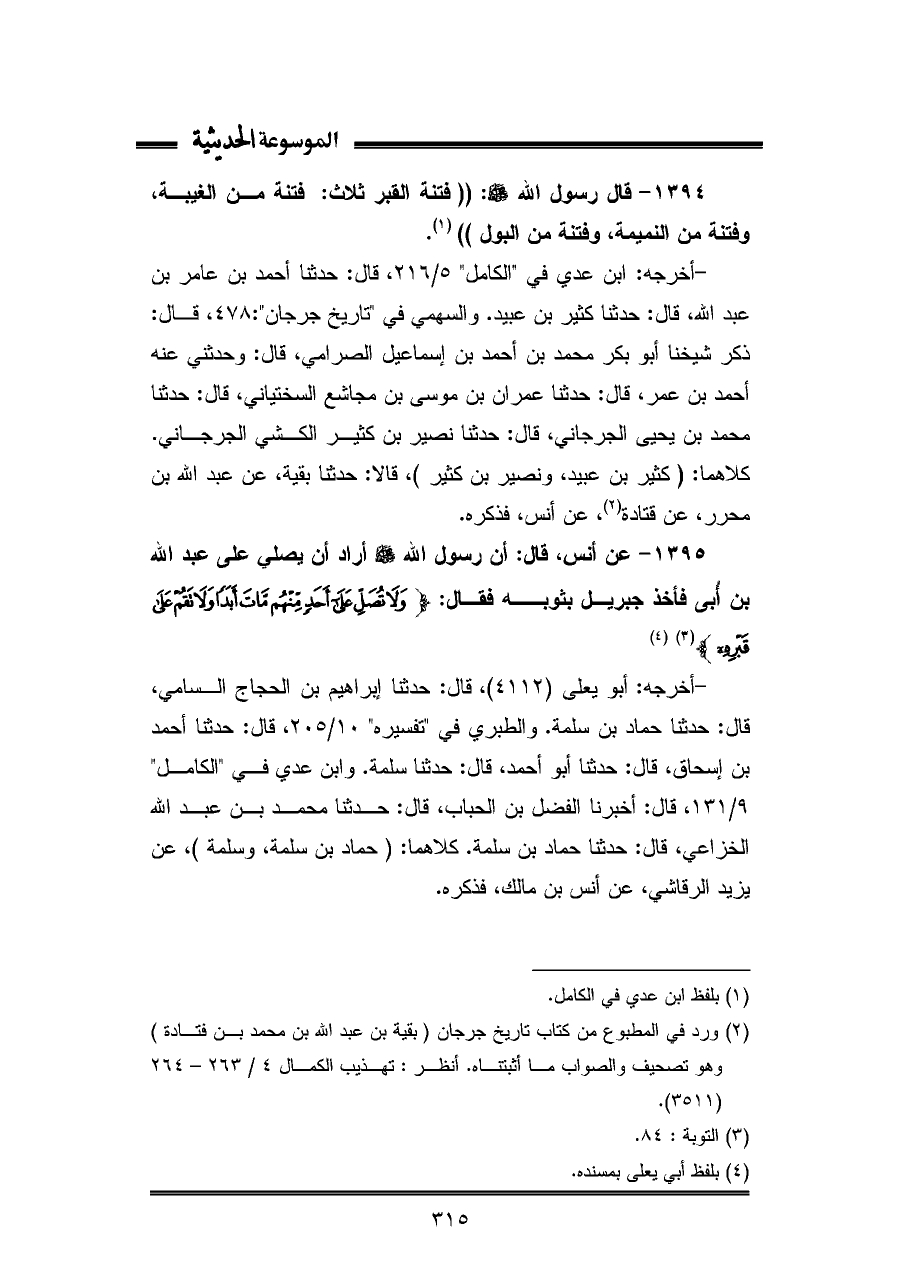 الموسوعة الحديثية
١٣٩٤- قال رسول الله ﷺ: (( فتنة القبر ثلاث: فتنة من الغيبة،
وفتنة من النميمة، وفتنة من البول )) (١).
-أخرجه: ابن عدي في "الكامل" ٢١٦/٥، قال: حدثنا أحمد بن عامر بن
عبد الله، قال: حدثنا كثير بن عبيد. والسهمي في "تاريخ جرجان":٤٧٨، قال:
ذكر شيخنا أبو بكر محمد بن أحمد بن إسماعيل الصرامي، قال: وحدثني عنه
أحمد بن عمر، قال: حدثنا عمران بن موسى بن مجاشع السختياني، قال: حدثنا
محمد بن يحيى الجرجاني، قال: حدثنا نصير بن كثير الكشي الجرجاني.
كلاهما: ( كثير بن عبيد، ونصير بن كثير )، قالا: حدثنا بقية، عن عبد الله بن
محرر، عن قتادة(٢)، عن أنس، فذكره.
١٣٩٥- عن أنس، قال: أن رسول الله ﷺ أراد أن يصلي على عبد الله
بن أُبى فأخذ جبريل بثوبه فقال: ﴿ وَلَا تُصَلِّ عَلَىٰٓ أَحَدٍ مِّنْهُم مَّاتَ أَبَدًا وَلَا نَقُمْ عَلَىٰ
قَبْرِهِۦ ﴾(٣) (٤)
-أخرجه: أبو يعلى (٤١١٢)، قال: حدثنا إبراهيم بن الحجاج السامي،
قال: حدثنا حماد بن سلمة. والطبري في "تفسيره" ٢٠٥/١٠، قال: حدثنا أحمد
بن إسحاق، قال: حدثنا أبو أحمد، قال: حدثنا سلمة. وابن عدي في "الكامل"
١٣١/٩، قال: أخبرنا الفضل بن الحباب، قال: حدثنا محمد بن عبد الله
الخزاعي، قال: حدثنا حماد بن سلمة. كلاهما: ( حماد بن سلمة، وسلمة )، عن
يزيد الرقاشي، عن أنس بن مالك، فذكره.
(١) بلفظ ابن عدي في الكامل.
(٢) ورد في المطبوع من كتاب تاريخ جرجان ( بقية بن عبد الله بن محمد بن فتادة )
وهو تصحيف والصواب ما أثبتناه. أنظر : تهذيب الكمال ٤ / ٢٦٣ – ٢٦٤
(٣٥١١).
(٣) التوبة : ٨٤.
(٤) بلفظ أبي يعلى بمسنده.
٣١٥